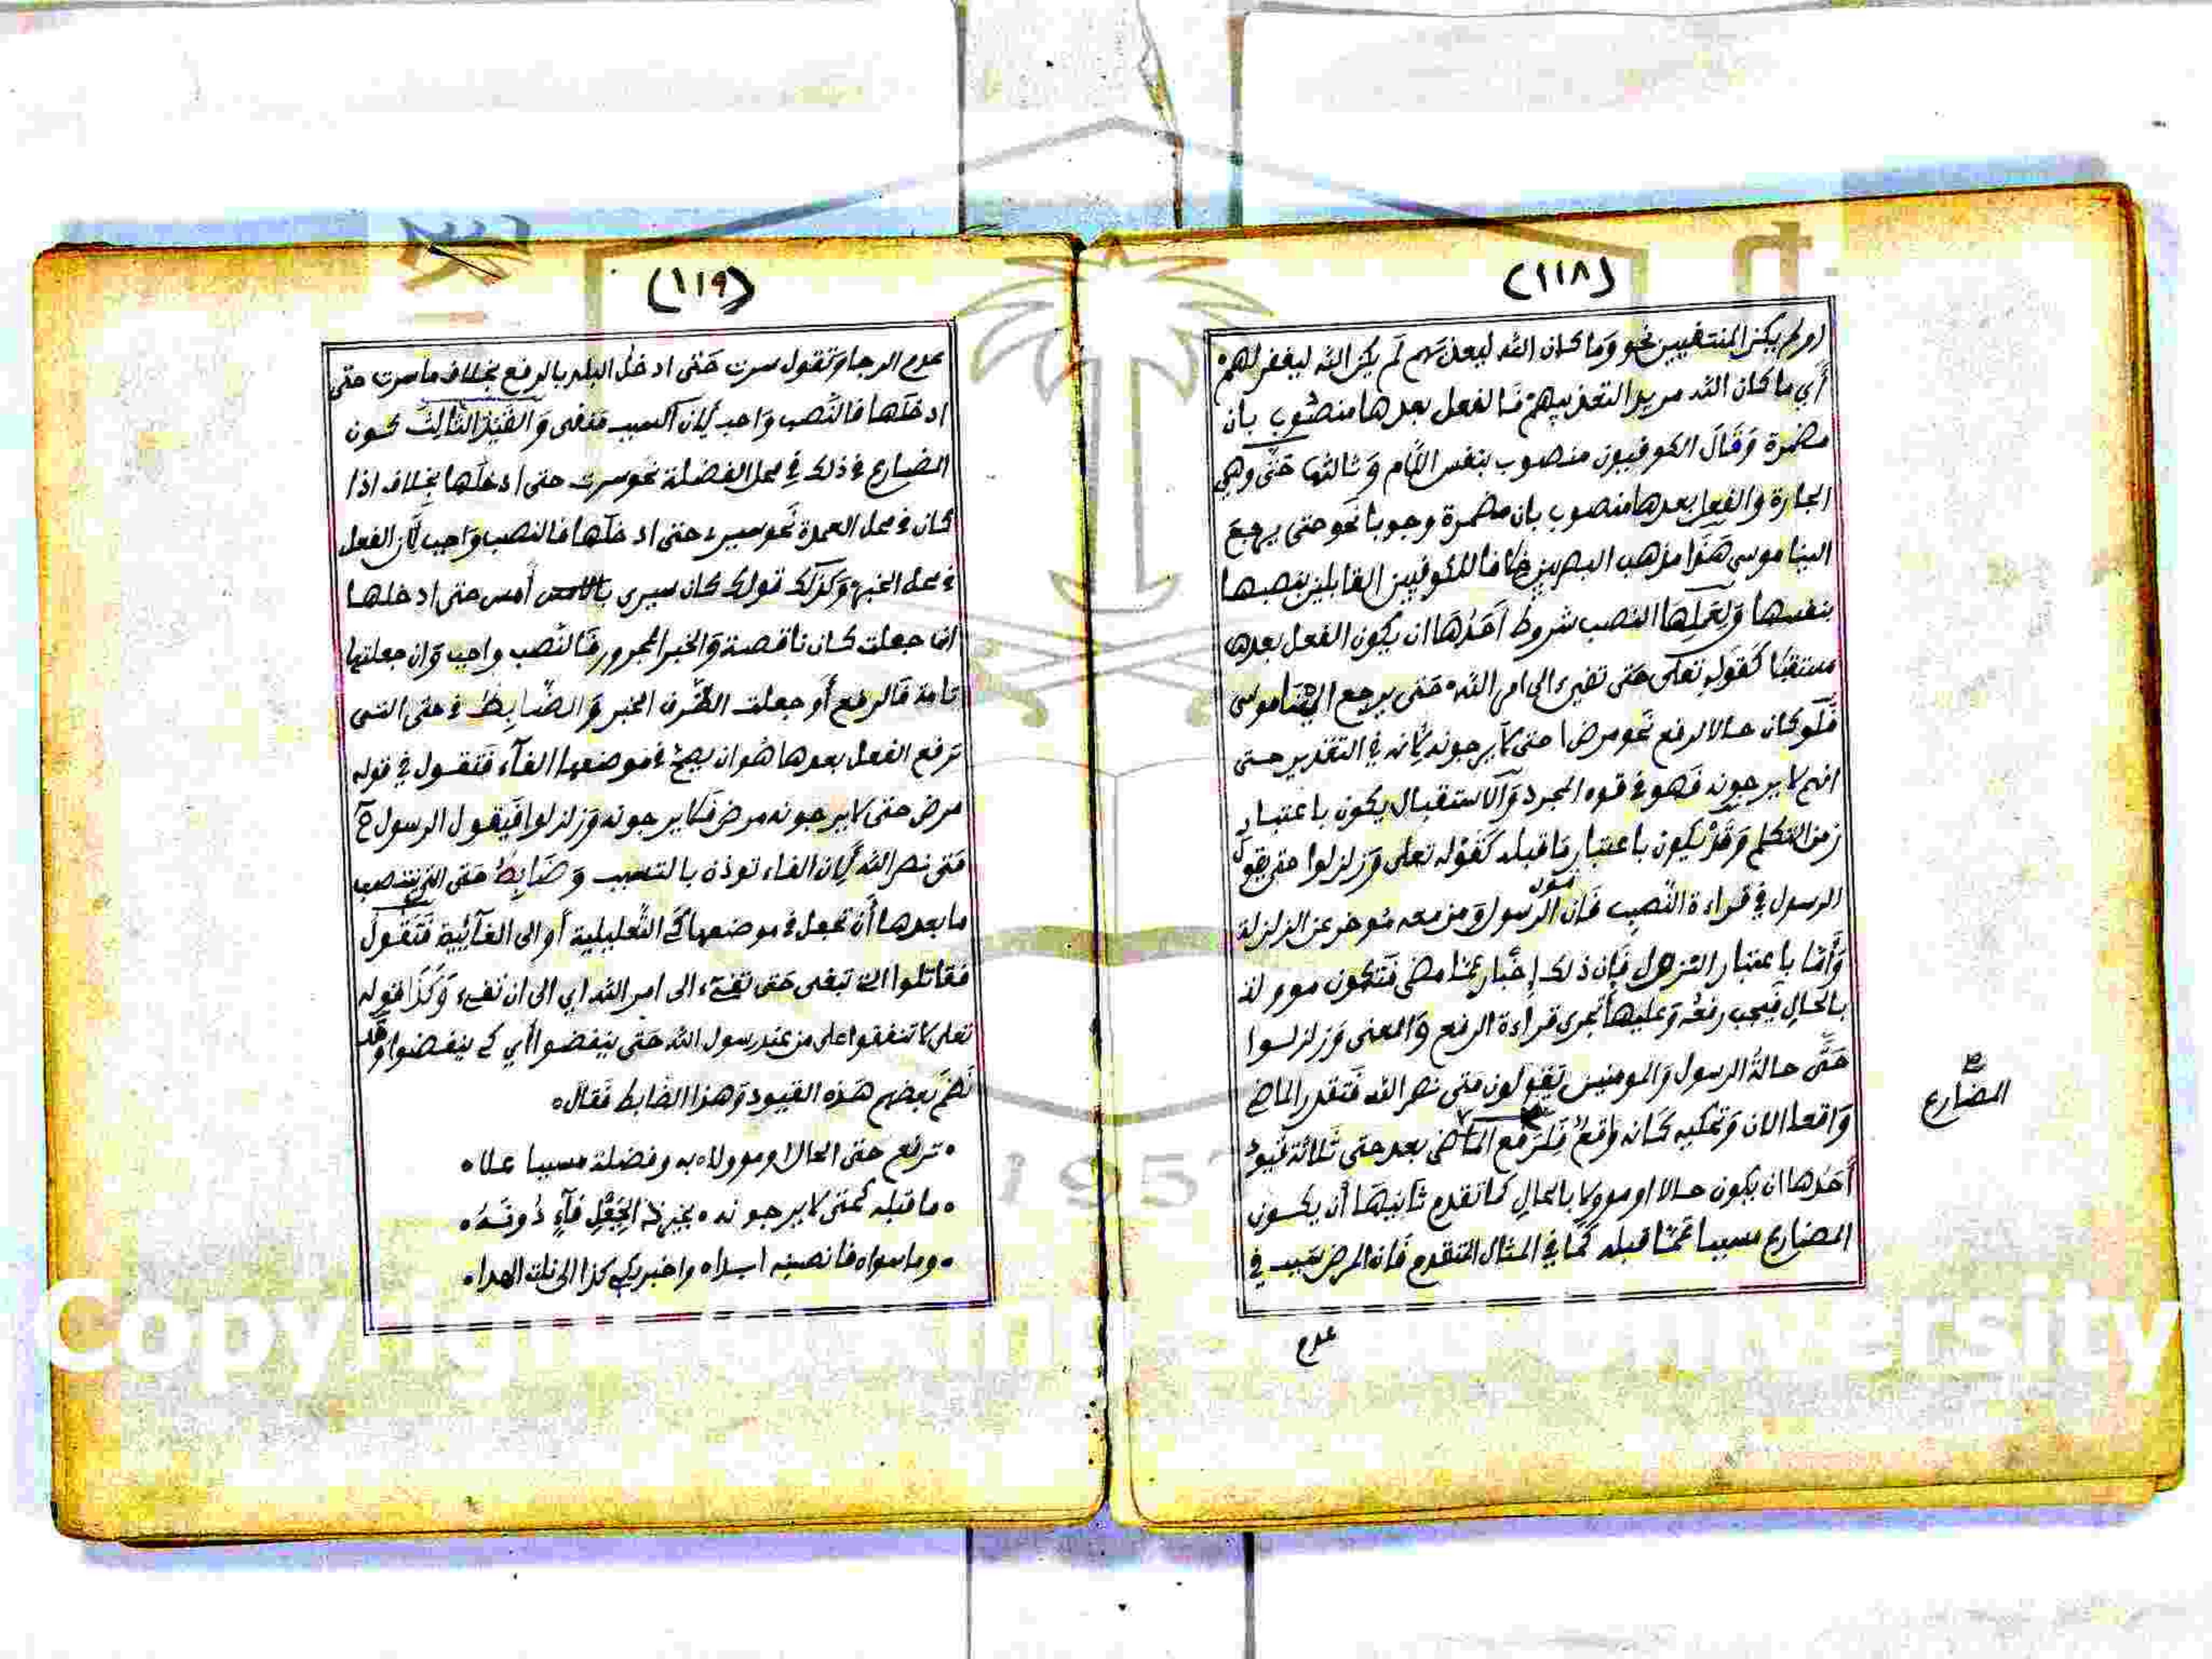 (١١٨)
او لم يكن المنتفيين نحو وَما كان الله ليعذبهم لم يكن الله ليغفر لهم
أي ما كان الله مريدا لتعذيبهم فالفعل بعدها منصُوب بان
مضمرة وَقَالَ الكوفيون منصوب بنفس اللام وَثالثها حَتَّى وهي
الجارة والفعل بعدها منصوب بان مضمرة وجوبا نحو حتى يرجع
الينا موسى هَذا مذهب البصريين خلافا للكوفيين القايلين بنصبها
بنفسها وَلعَملِهَا النصب شروط أحَدُهَا ان يكون الفعل بعدها
مستقبلا كقوله تعلى حَتى تفيء الى امر الله حَتى يرجع الينَا موسى
فَلَو كان حالا لرفع نحو مرض حتى لا يرجونه لأنه في التقدير حتى
انهم لا يرجونه فهو في قوه المجرد وَالاستقبال يكون باعتبار
زمن التكلم وَقَدْ يكون باعتبار مَا قبله كَقوله تعلى وَزلزلوا حتى يقول
الرسول في قراءة النَّصب فَان قول الرَّسول وَمن معه مُوخر عن الزلزلة
وَأمّا باعتبار النزول فإن ذلك إخْبار عمّا مضى فتكون موولة
بالحالِ فَيجب رفعُه وَعليهَا تجرى قراءة الرفع وَالمعنى وَزلزلوا
حَتَّى حالةُ الرسول وَالمومنين يَقولون متى نصر الله فَتقدر الماض
وَاقعا الان وَتحكيه كَانه وَاقعٌ فَلرَفع بعد حتى ثَلاثة قيود
المضارع صح
أحَدُهَا ان يكون حالا او موولا بالحالِ كما تقدم ثانيهَا أن يكون
المضارع مسببا عَمّا قبله كمَا في المثال المتقدم فَان المرض سَبب في
عدم
(١١٩)
عدم الرجا وَتقول سرت حَتى ادخل البلد بالرفع بخلاف ما سرت حتى
ادخلها فالنَّصب وَاجب لأن السبب منفى وَالقَيْدُ الثالث كون
المضارع في ذلك في محل الفضلة نحو سرت حتى ادخلَها بخلاف اذا
كان في محل العمدة نَحو سيرى حتى ادخلَها فالنصب وَاجب لأن الفعل
في محل الخبر وَكَذلك قولك كان سيرى أمس حتى ادخلها
إن جعلت كان ناقصة وَالخبر المجرور فَالنَّصب واجب وَان جعلتها
تامة فَالرفع أو جعلت الظَّرف الخبر وَالضَّابِطُ في حتى التى
ترفع الفعل بعدها هُو ان يصحّ في موضعها الفآء فَتقول في قوله
مرض حتى لا يرجونه مرض فَلا يرجونه وَزلزلوا فَيقول الرسول
مَتى نصر الله لأن الفاء توذن بالتسبب وَضَابِطُ حَتى التى ينتصب
ما بعدها أن تجعل في موضعها كَي التَّعليلية أو الى الغآئية فَتقُول
فقاتلوا التى تبغى حَتى تفيء الى امر الله اي الى ان تفيء وَكَذا قوله
تعلى لا تنفقوا على من عند رسول الله حَتى ينفضوا أي كي ينفضوا وَقد
نَظم بعضهم هَذه القيود وَهذا الضَّابط فَقال
ترفع حتى الحال او موولا به وفضلة مسببا علا
ما قبله كحتى لا يرجونه يجيزه الجَعْلُ فآءٍ دُونَهُ
وما سواه فانصبنه ابدا